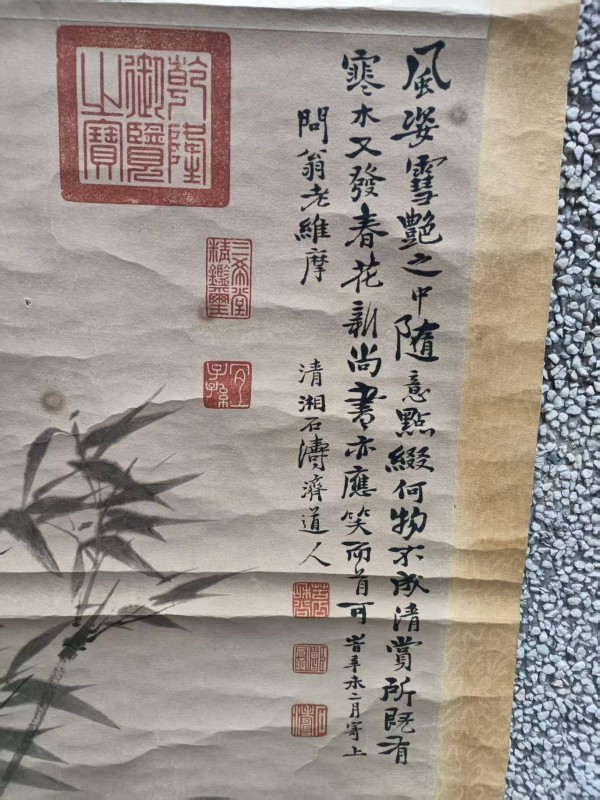 風姿雪艷之中隨意點綴何物不成清賞所既有
寒木又發春花新尚書亦應笑而首可
昔辛未二月寄上
問翁老維摩
清湘石濤濟道人
乾隆御覽之寶
三希堂精鑑璽
宜子孫